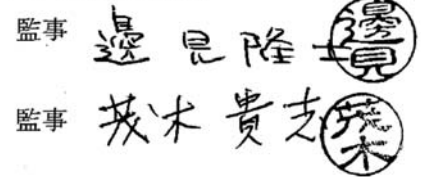 監事 邊見隆士 邊見
監事 茂木貴志 茂木